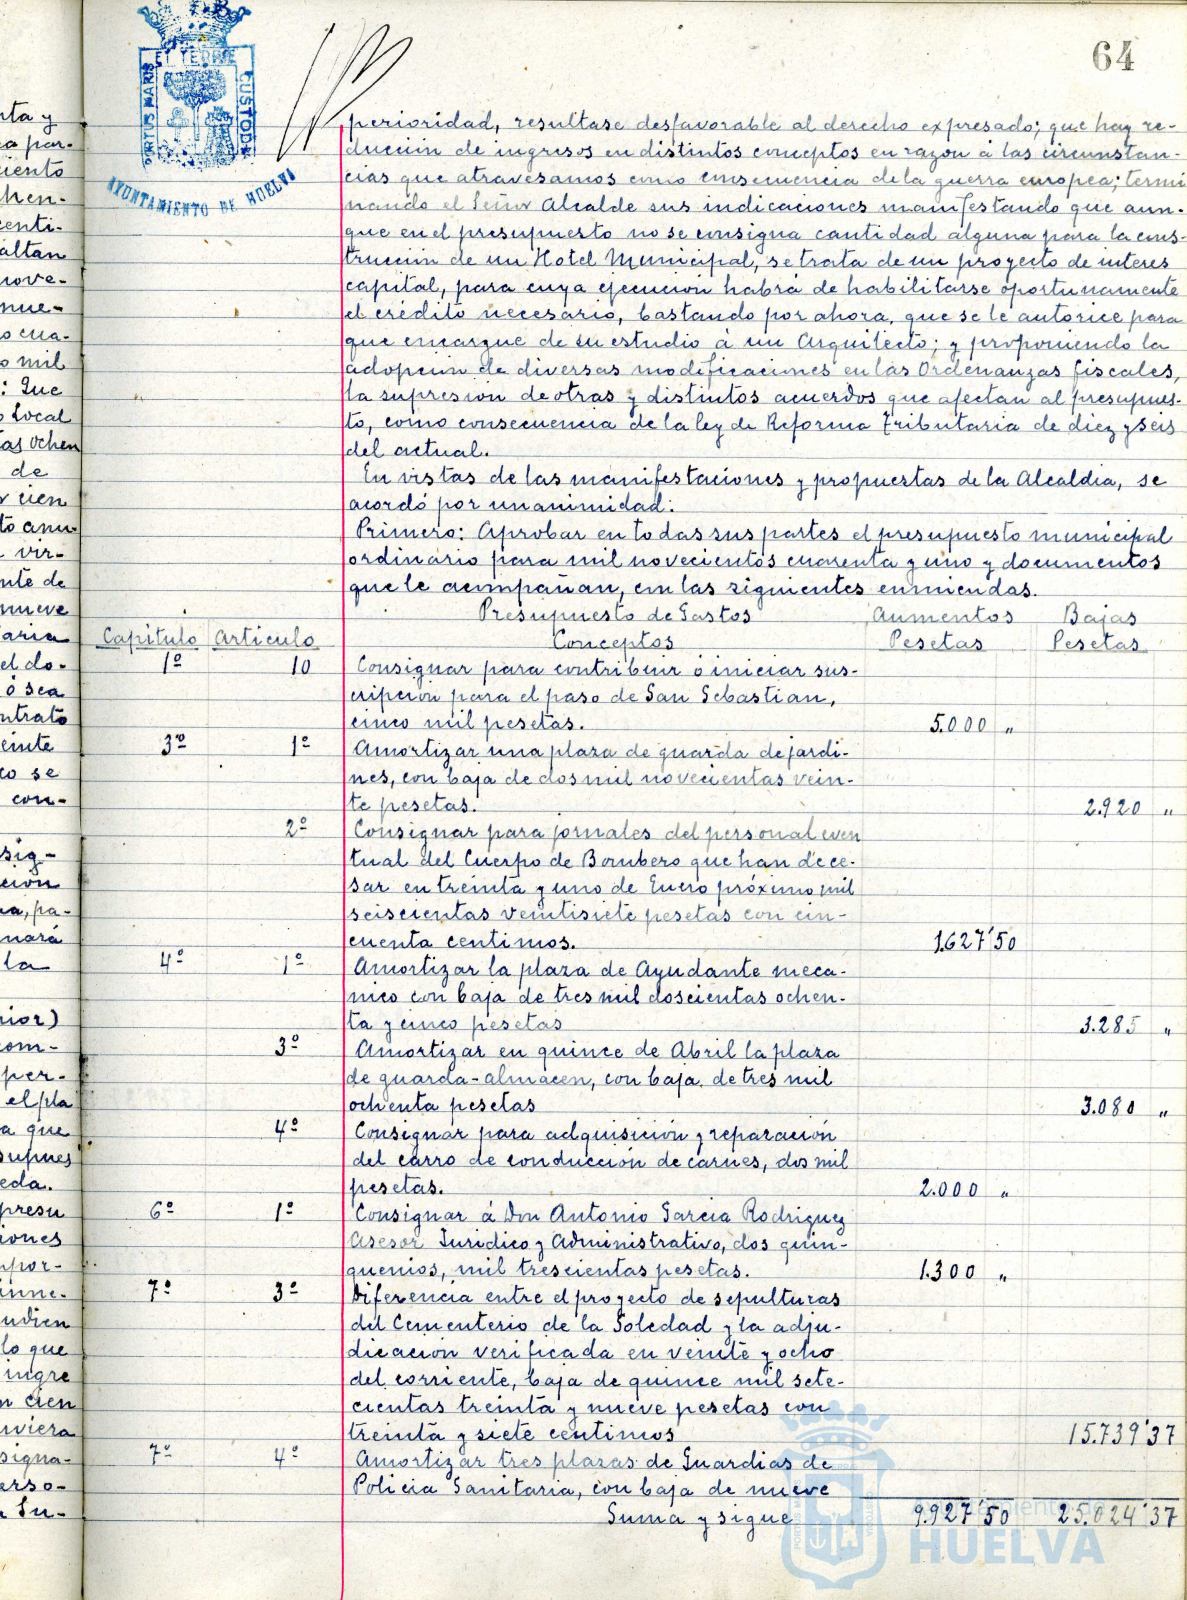 64
PORTUS MARIS ET TERRE CUSTODIA
AYUNTAMIENTO DE HUELVA
perioridad, resultase desfavorable al derecho expresado; que hay re-
ducción de ingresos en distintos conceptos en razon á las circunstan-
cias que atravesamos como consecuencia de la guerra europea; termi
nando el Señor Alcalde sus indicaciones manifestando que aun-
que en el presupuesto no se consigna cantidad alguna para la cons-
trucción de un Hotel Municipal, se trata de un proyecto de interes
capital, para cuya ejecución habrá de habilitarse oportunamente
el crédito necesario, bastando por ahora, que se le autorice para
que encargue de su estudio á un Arquitecto; y proponiendo la
adopción de diversas modificaciones en las Ordenanzas fiscales,
la supresión de otras y distintos acuerdos que afectan al presupues-
to, como consecuencia de la ley de Reforma Tributaria de diez y seis
del actual.
En vistas de las manifestaciones y propuestas de la Alcaldia, se
acordó por unanimidad:
Primero: Aprobar en todas sus partes el presupuesto municipal
ordinario para mil novecientos cuarenta y uno y documentos
que le acompañan, con las siguientes enmiendas.
Presupuesto de Gastos Aumentos Bajas
Capitulo Articulo Conceptos Pesetas Pesetas
1º 10 Consignar para contribuir ó iniciar sus-
cripción para el paso de San Sebastian,
cinco mil pesetas. 5.000 "
3º 1º Amortizar una plaza de guarda de jardi-
nes, con baja de dos mil novecientas vein-
te pesetas. 2.920 "
2º Consignar para jornales del personal even
tual del Cuerpo de Bombero que han de ce-
sar en treinta y uno de Enero próximo mil
seiscientas veintisiete pesetas con cin-
cuenta centimos. 1.627'50
4º 1º Amortizar la plaza de Ayudante meca-
nico con baja de tres mil doscientas ochen-
ta y cinco pesetas 3.285 "
3º Amortizar en quince de Abril la plaza
de guarda-almacen, con baja de tres mil
ochenta pesetas 3.080 "
4º Consignar para adquisición y reparación
del carro de conducción de carnes, dos mil
pesetas. 2.000 "
6º 1º Consignar á Don Antonio Garcia Rodriguez
Asesor Juridico y Administrativo, dos quin-
quenios, mil trescientas pesetas. 1.300 "
7º 3º Diferencia entre el proyecto de sepulturas
del Cementerio de la Soledad y la adju-
dicación verificada en veinte y ocho
del corriente, baja de quince mil sete-
cientas treinta y nueve pesetas con
treinta y siete centimos 15.739'37
7º 4º Amortizar tres plazas de Guardias de
Policia Sanitaria, con baja de nueve
Suma y sigue 9.927'50 25.024'37
Ayuntamiento de
HUELVA